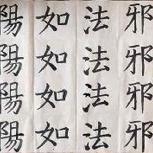 邪邪邪邪
法法法法
如如如如
陽陽陽陽